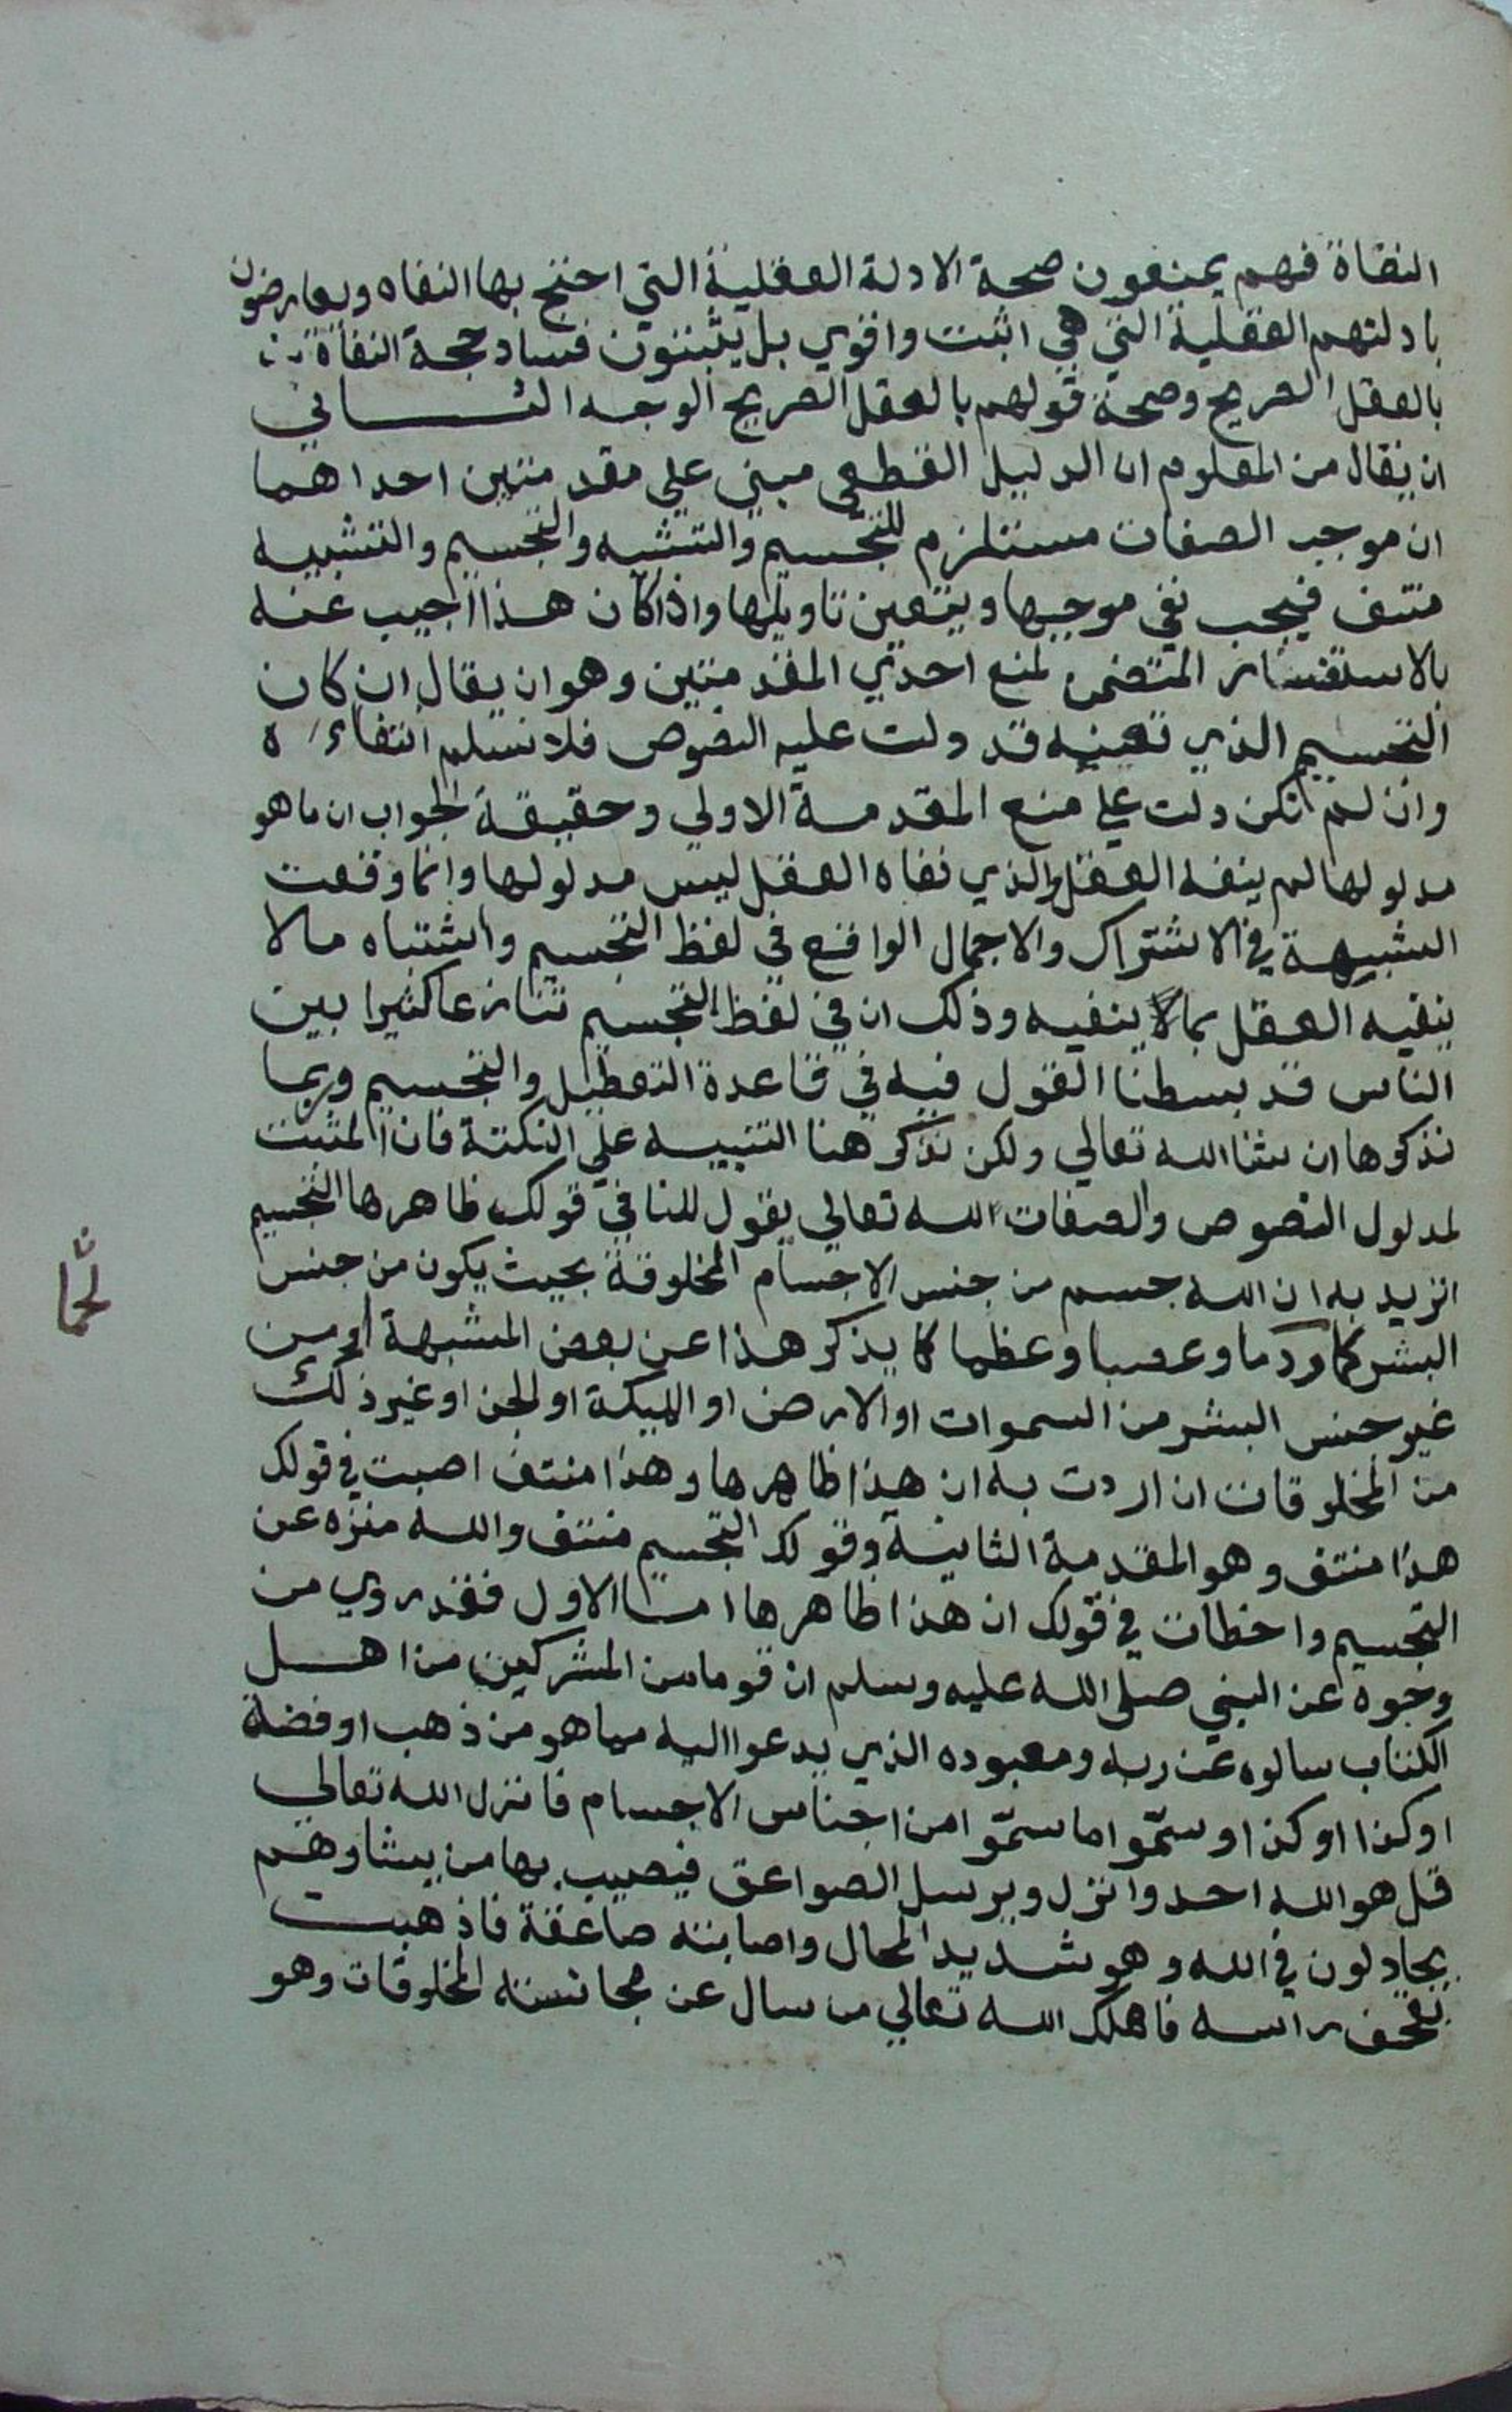 النفاة فهم يمنعون صحة الادلة العقلية التي احتج بها النفاه ويعارضون
بادلتهم العقلية التي هي اثبت واقوي بل يثبتون فساد حجة النفاة
بالعقل الصريح وصحة قولهم بالعقل الصريح الوجه الثاني
ان يقال من المعلوم ان الدليل القطعي مبني علي مقدمتين احداهما
ان موجب الصفات مستلزم للتجسيم والتشبه والتجسيم والتشبيه
منتف فيجب نفي موجبها ويتعين تاويلها واذا كان هذا اجيب عنه
بالاستفسار المتضمن لمنع احدي المقدمتين وهو ان يقال ان كان
التجسيم الذي تعينه قد دلت عليه النصوص فلا نسلم انتفاءه
وان لم تكن دلت علي منع المقدمة الاولي وحقيقة الجواب ان ما هو
مدلولها لم ينفه العقل والذي نفاه العقل ليس مدلولها وانما وقعت
الشبهة في الاشتراك والاجمال الواقع في لفظ التجسيم واشتباه مالا
ينفيه العقل بمالا ينفيه وذلك ان في لفظ التجسيم تنازعا كثيرا بين
الناس قد بسطنا القول فيه في قاعدة التعطيل والتجسيم وربما
نذكرها ان شا الله تعالي ولكن نذكر هنا التنبيه علي النكتة فان المثبت
لمدلول النصوص والصفات لله تعالي يقول للنافي قولك ظاهرها التجسيم
اتريد به ان الله جسم من جنس الاجسام المخلوقة بحيث يكون من جنس
البشر لحما ودما وعصبا وعظما كما يذكر هذا عن بعض المشبهة او من
لحما
غير جنس البشر من السموات او الارض او الملئكة او الجن او غير ذلك
من المخلوقات ان اردت به ان هذا ظاهرها وهذا منتف اصبت في قولك
هذا منتف وهو المقدمة الثانية وقولك التجسيم منتف والله منزه عن
التجسيم واخطات في قولك ان هذا ظاهرها اما الاول فقد روي من
وجوه عن النبي صلى الله عليه وسلم ان قوما من المشركين من اهل
الكتاب سالوه عن ربه ومعبوده الذي يدعوا اليه مما هو من ذهب او فضة
او كذا او كذا وسمّوا ما سمّوا من اجناس الاجسام فانزل الله تعالي
قل هو الله احد وانزل ويرسل الصواعق فيصيب بها من يشا وهم
يجادلون في الله وهو شديد المحال واصابته صاعقة فاذهبت
بقحف راسه فاهلك الله تعالي من سال عن مجانسته المخلوقات وهو